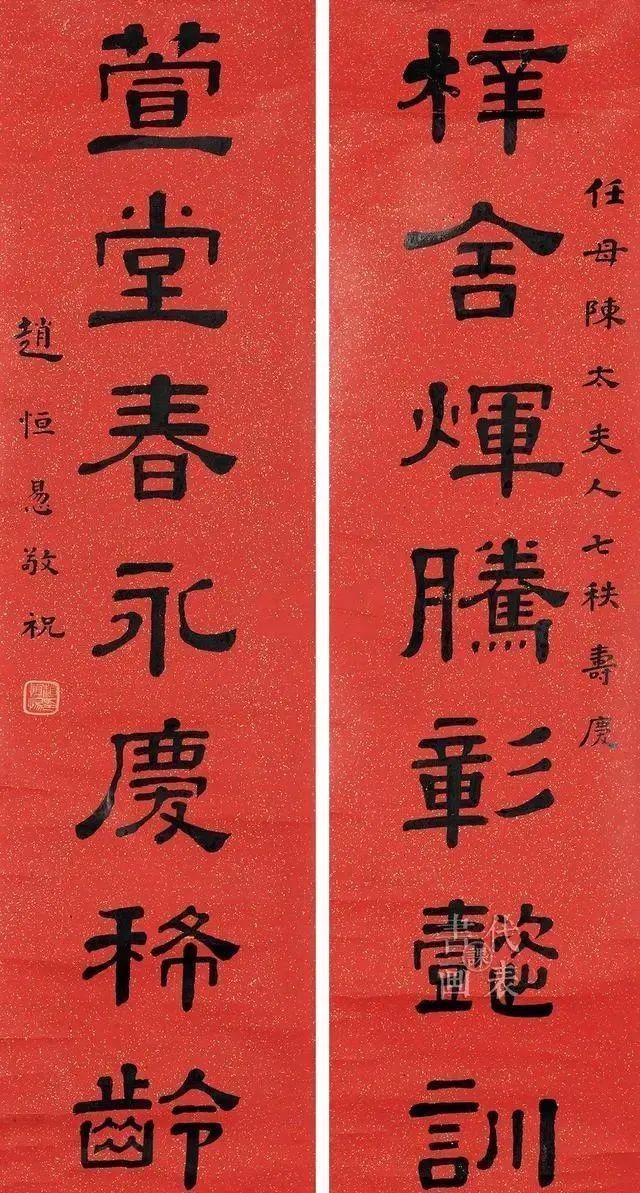 任母陳太夫人七秩壽慶
梓舍煇騰彰懿訓
萱堂春永慶稀齡
趙恒惖敬祝
書画
課
代表